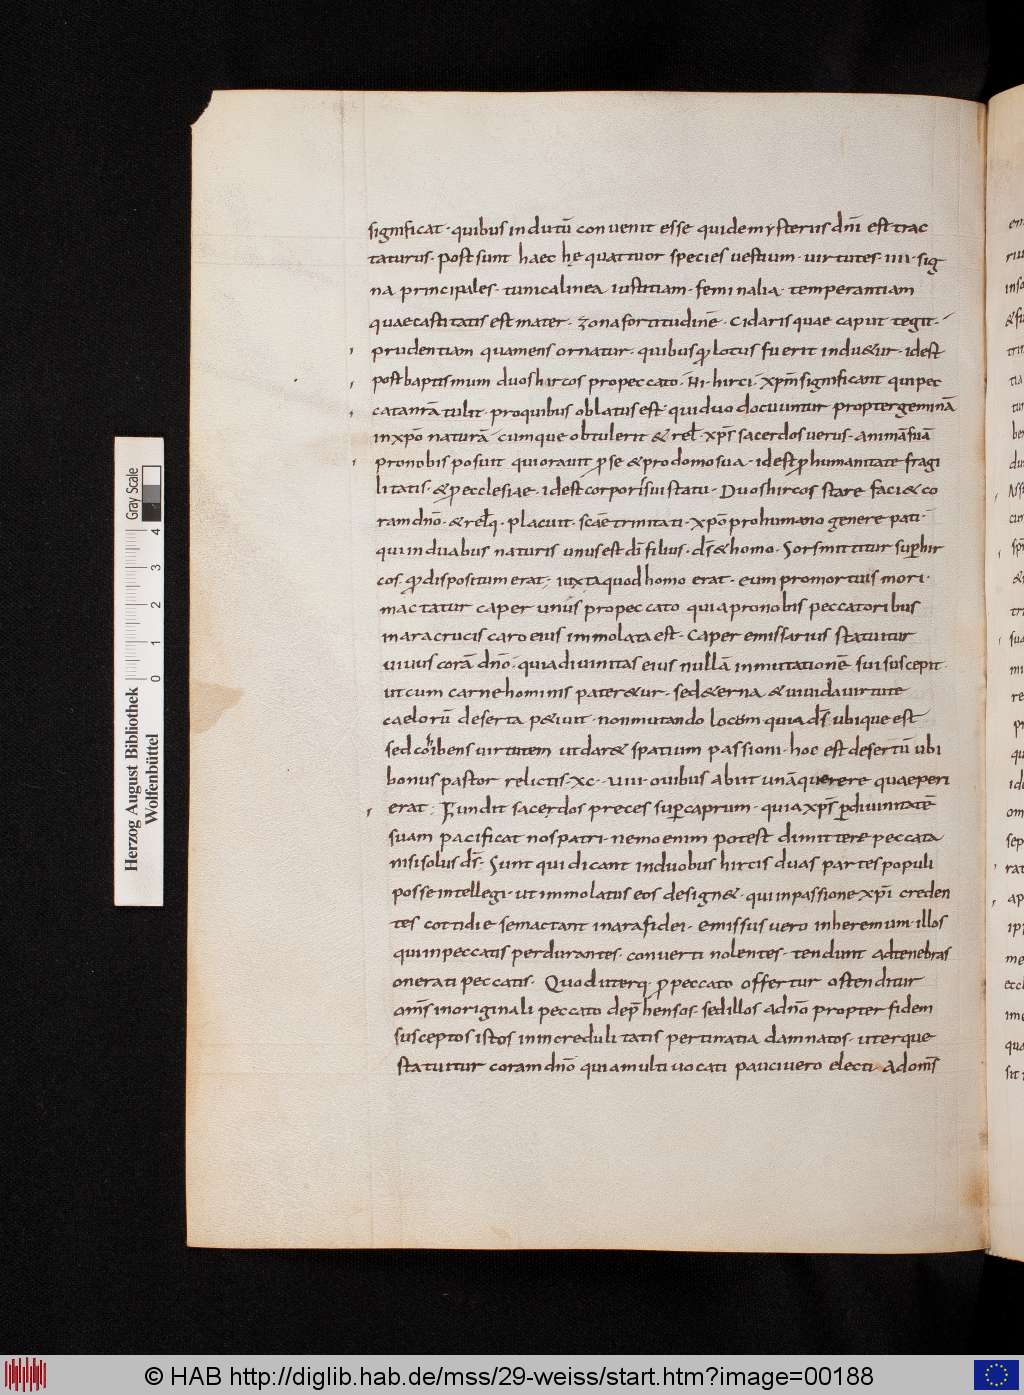 significat · quibus indutū convenit esse qui de mysteriis dnī est trac
taturus · Post sunt haec hę quattuor species vestium · virtutes · iiii · sig
na principales · tunica linea iustitiam · feminalia · temperantiam
quae castitatis est mater · zona fortitudinē · Cidaris quae caput tegit ·
prudentiam qua mens ornatur · quibus lotus fuerit indu&ur · id est
post baptismum duos hircos pro peccato · Hi · hirci · xpm̄ significant qui pec
cata nrā tulit · pro quibus oblatus est · qui duo docuuntur propter geminā
in xpō naturā cumque obtulerit & rel · xps̄ sacerdos verus · animā suā
pro nobis posuit qui oravit p se & pro domo sua · id est p humanitate fragi
litatis · & p ecclesiae · id est corporis sui statu · Duos hircos stare faci& co
ram dnō · & relq · placuit · scae trinitati · xpō pro humano genere pati ·
qui in duabus naturis unus est dī filius · ds̄ & homo · Sors mittitur sup hir
cos · dispositum erat · iuxta quod homo erat · eum pro mortuis mori ·
mactatur caper unus pro peccato quia pro nobis peccatoribus
in ara crucis caro eius immolata est · Caper emissarius statuitur
vivus corā dnō · quia divinitas eius nullā inmutationē sui suscepit ·
ut cum carne hominis pater&ur · sed &erna & vivida virtute
caelorū deserta p&iuit · non mutando locum quia ds̄ ubique est
sed cohibens virtutem ut dar& spatium passioni · hoc est desertū ubi
bonus pastor relictis · xc · viiii · ovibus abiit unā querere quae peri
erat · Fundit sacerdos preces sup caprum · quia xps̄ p divinitatē
suam pacificat nos patri · nemo enim potest dimittere peccata
nisi solus ds̄ · Sunt qui dicant in duobus hircis duas partes populi
posse intellegi · ut immolatus eos design& · qui in passione xpī creden
tes cottidie se mactant in ara fidei · emissus vero in heremum · illos
qui in peccatis perdurantes · converti nolentes · tendunt ad tenebras
onerati peccatis · Quod uterq · p peccato offertur ostenditur
oms̄ in originali peccato dephensos · sed illos ad nō propter fidem
susceptos istos in incredulitatis pertinatia damnatos · uterque
statuitur coram dnō quia multi vocati pauci vero electi ad oms̄
Gray Scale
0 1 2 3 4
Herzog August Bibliothek
Wolfenbüttel
© HAB http://diglib.hab.de/mss/29-weiss/start.htm?image=00188